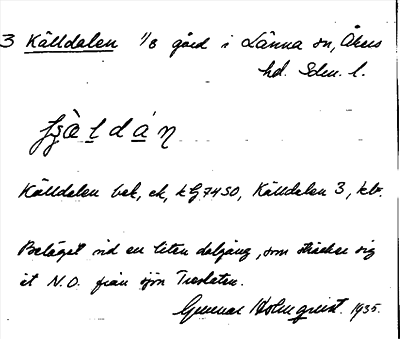 3 Källdalen 1/8 gård i Länna sn, Åkers
hd. Sdm. l.
Källdalen bek, ek, kG7450, Källdalen 3, kbr.
Beläget vid en liten dalgång, som sträcker sig
åt N.O. från sjön
Gunnar Holmqvist. 1935.